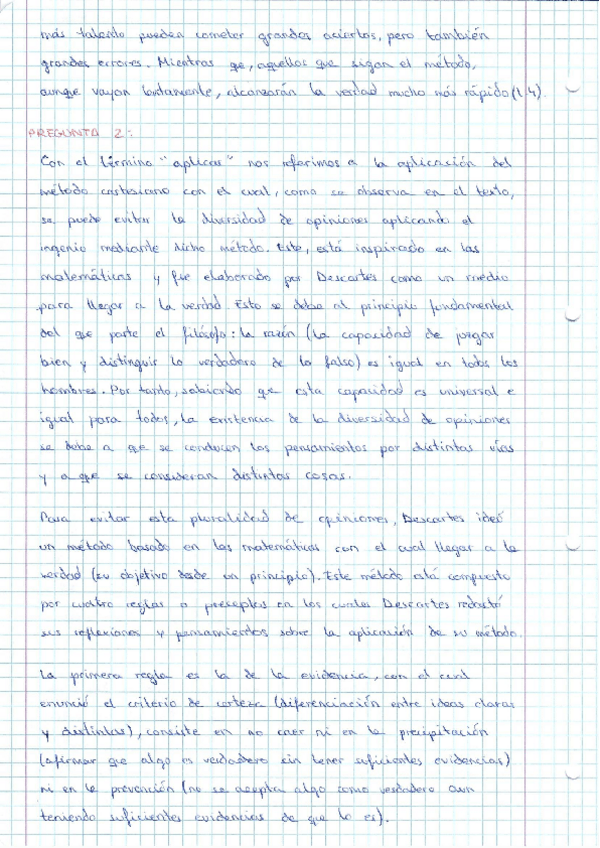 más talento pueden cometer grandes aciertos, pero también
grandes errores. Mientras qe, aquellos que sigan el método,
aunqe vayan lentamente, alcanzarán la verdad mucho más rápido (l.4).
PREGUNTA 2:
Con el término "aplicar" nos referimos a la aplicación del
método cartesiano con el cual, como se observa en el texto,
se puede evitar la diversidad de opiniones aplicando el
ingenio mediante dicho método. Este, está inspirado en las
matemáticas y fue elaborado por Descartes como un medio
para llegar a la verdad. Esto se debe al principio fundamental
del qe parte el filósofo: la razón (la capacidad de juzgar
bien y distinguir lo verdadero de lo falso) es igual en todos los
hombres. Por tanto, sabiendo qe esta capacidad es universal e
igual para todos, la existencia de la diversidad de opiniones
se debe a qe se conducen los pensamientos por distintas vías
y a qe se consideran distintas cosas.
Para evitar esta pluralidad de opiniones, Descartes ideó
un método basado en las matemáticas con el cual llegar a la
verdad (su objetivo desde un principio). Este método está compuesto
por cuatro reglas o preceptos en los cuales Descartes redactó
sus reflexiones y pensamientos sobre la aplicación de su método.
La primera regla es la de la evidencia, con el cual
enunció el criterio de certeza (diferenciación entre ideas claras
y distintas), consiste en no caer ni en la precipitación
(afirmar qe algo es verdadero sin tener suficientes evidencias)
ni en la prevención (no se acepta algo como verdadero aun
teniendo suficientes evidencias de que lo es).